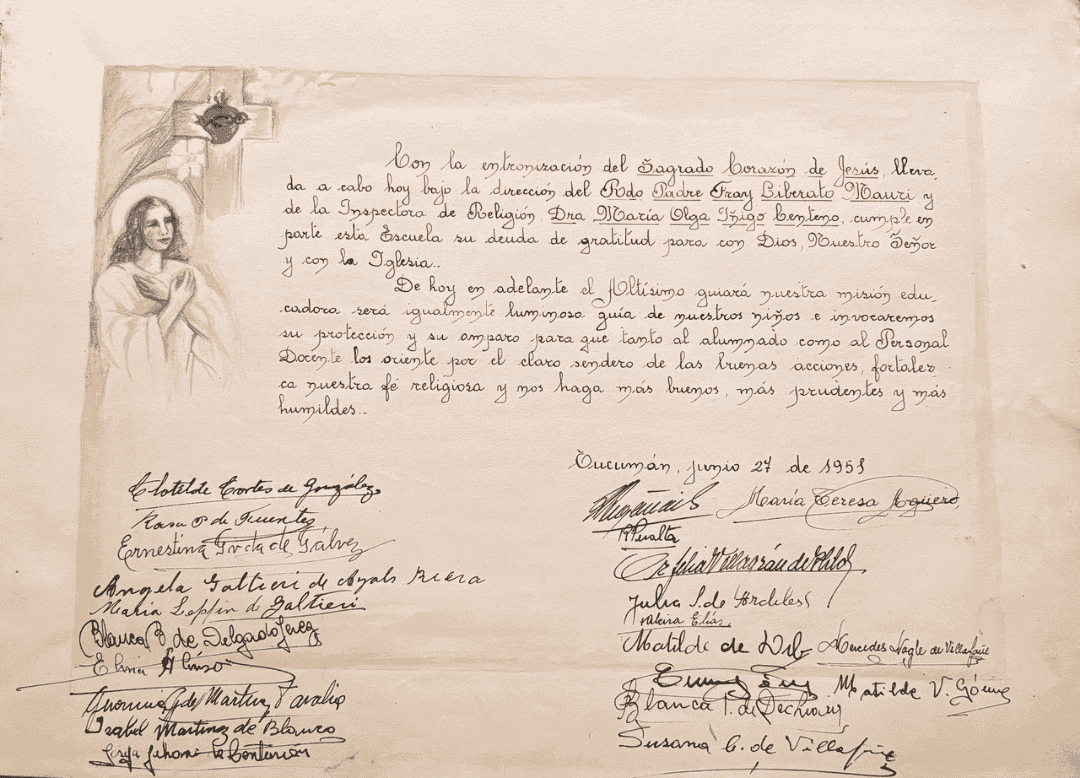 Con la entronización del Sagrado Corazón de Jesús, lleva-
da a cabo hoy bajo la dirección del Rdo Padre Fray Liberato Nauri y
de la Inspectora de Religión, Dra María Olga Iñigo Centeno, cumple en
parte esta Escuela su deuda de gratitud para con Dios, Nuestro Señor
y con la Iglesia..
De hoy en adelante el Altísimo guiará nuestra misión edu-
cadora será igualmente luminosa guía de nuestros niños e invocaremos
su protección y su amparo para que tanto al alumnado como al Personal
Docente los oriente por el claro sendero de las buenas acciones, fortalez
ca nuestra fé religiosa y nos haga más buenos, más prudentes y más
humildes..
Tucumán, junio 27 de 1951
Clotilde Cortes de González
Rosa P de Fuentes
Ernestina de Gálvez
Angela Galtieri de Ayala Riera
Maria Leppin de Galtieri
Blanca B de Delgado Jerez
Elvira Alonso
de Martinez
Isabel Martinez de Blanco
María Teresa Agüero
R Peralta
Orfelia Villagrán de
Julia S. de Ardiles
Elías
Matilde de
Mercedes Nagle de Villafañe
Matilde V. Gómez
Blanca P. de
Susana C. de Villafañe